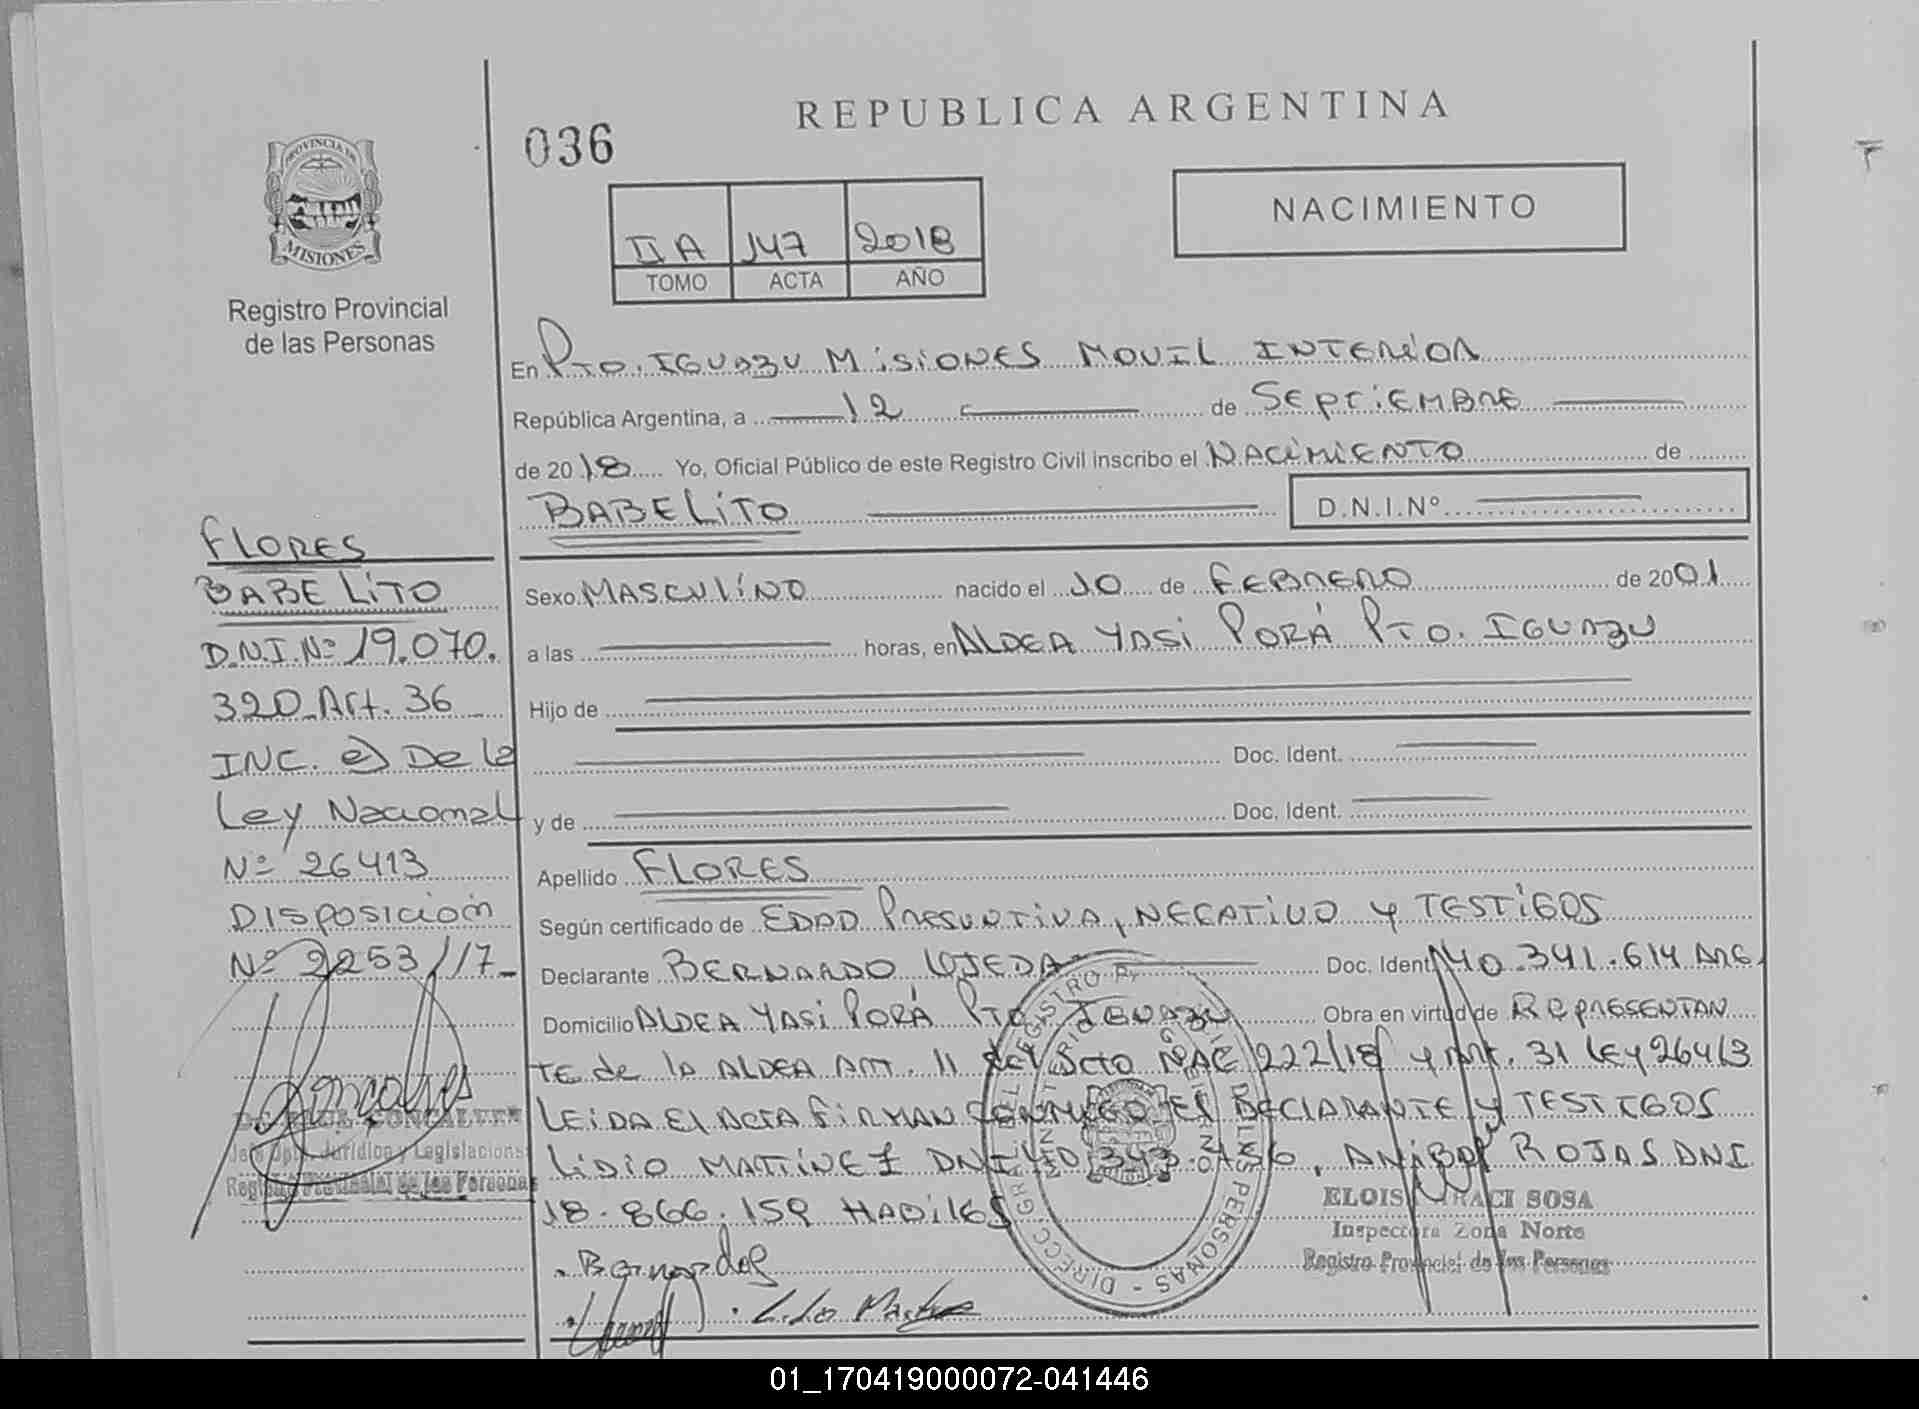 REPUBLICA ARGENTINA
036
PROVINCIA DE
MISIONES
Registro Provincial
de las Personas
NACIMIENTO
II A 147 2018
TOMO ACTA AÑO
En Pto. IGUAZU MISIONES MOVIL INTERIOR
República Argentina, a 12 de SEPTIEMBRE
de 2018 Yo, Oficial Público de este Registro Civil inscribo el NACIMIENTO de
BABELITO D.N.I.Nº
FLORES
BABELITO
D.N.I. Nº 19.070.
320 Art. 36
INC. e) De la
Ley Nacional
Nº 26413
DISPOSICION
Nº 2253/17
Sexo MASCULINO nacido el 10 de FEBRERO de 2001
a las horas, en ALDEA YASI PORÁ PTO. IGUAZU
Hijo de
Doc. Ident.
y de Doc. Ident.
Apellido FLORES
Según certificado de EDAD PRESUNTIVA, NEGATIVO Y TESTIGOS
Declarante BERNARDO OJEDA Doc. Ident. 40.341.614 ARG.
Domicilio ALDEA YASI PORÁ PTO. IGUAZU Obra en virtud de REPRESENTAN
TE de la ALDEA ART. 11 del Dcto NAC 222/18 y Art. 31 LEY 26413
LEIDA El ACTA FIRMAN CONMIGO El DECLARANTE Y TESTIGOS
LIDIO MARTINEZ DNI ANIBAL ROJAS DNI
18.866.159 HABILES
GONCALVES
Jefe Dpto. Jurídico y Legislacione
Registro Provincial de las Personas
ELOIS IRACI SOSA
Inspectora Zona Norte
Registro Provincial de las Personas
Bernardo
Lidio Martinez
01_170419000072-041446